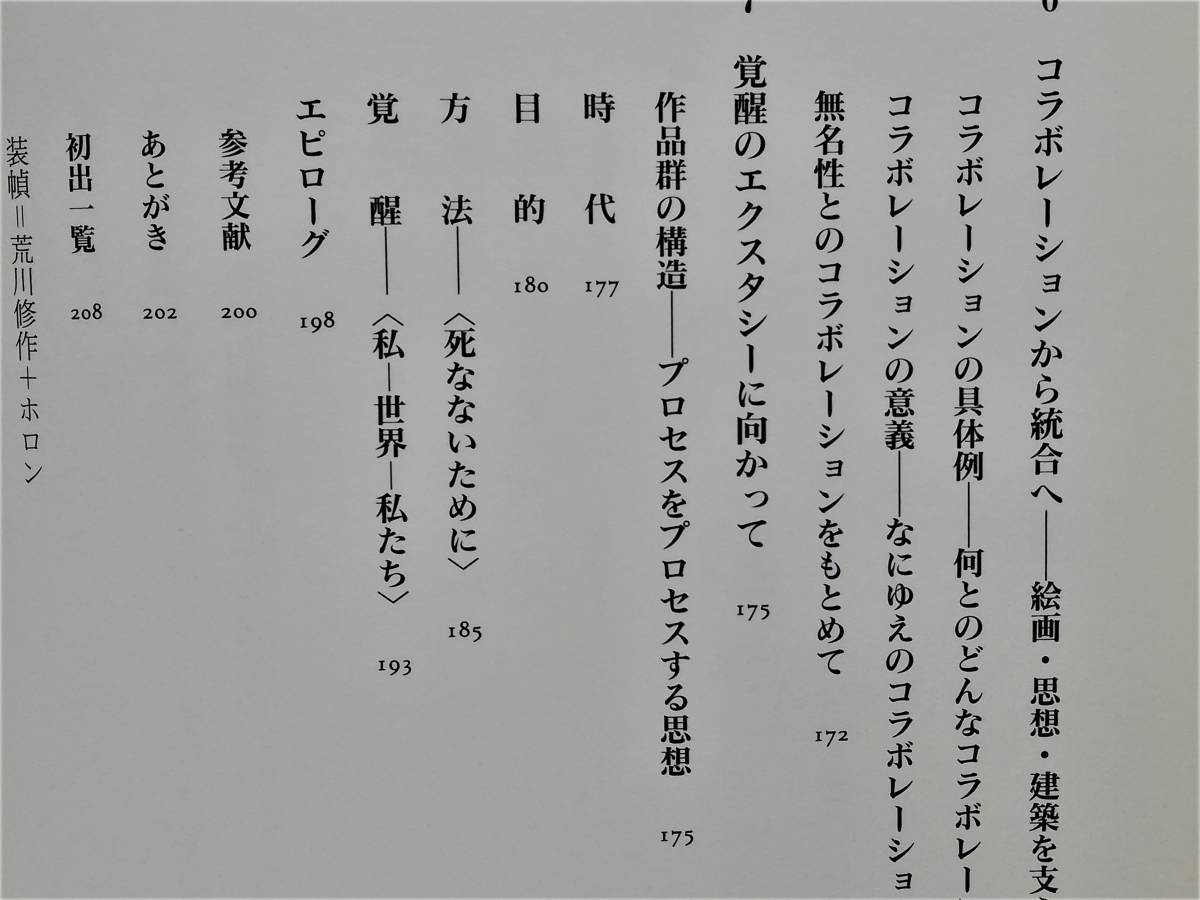 6 コラボレーションから統合へ――絵画・思想・建築を支
コラボレーションの具体例――何とのどんなコラボレー
コラボレーションの意義――なにゆえのコラボレーショ
無名性とのコラボレーションをもとめて 172
7 覚醒のエクスタシーに向かって 175
作品群の構造――プロセスをプロセスする思想 175
時代 177
目的 180
方法――〈死なないために〉 185
覚醒――〈私―世界―私たち〉 193
エピローグ 198
参考文献 200
あとがき 202
初出一覧 208
装幀＝荒川修作＋ホロン